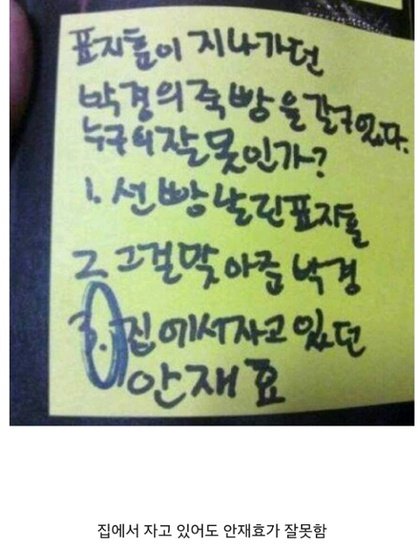 표지훈이 지나가던
박경의 죽빵을 갈구있다.
누구의 잘못인가?
1. 선빵 날린 표지훈
2. 그걸 맞아준 박경
3. 집에서 자고 있던
안재효
집에서 자고 있어도 안재효가 잘못함